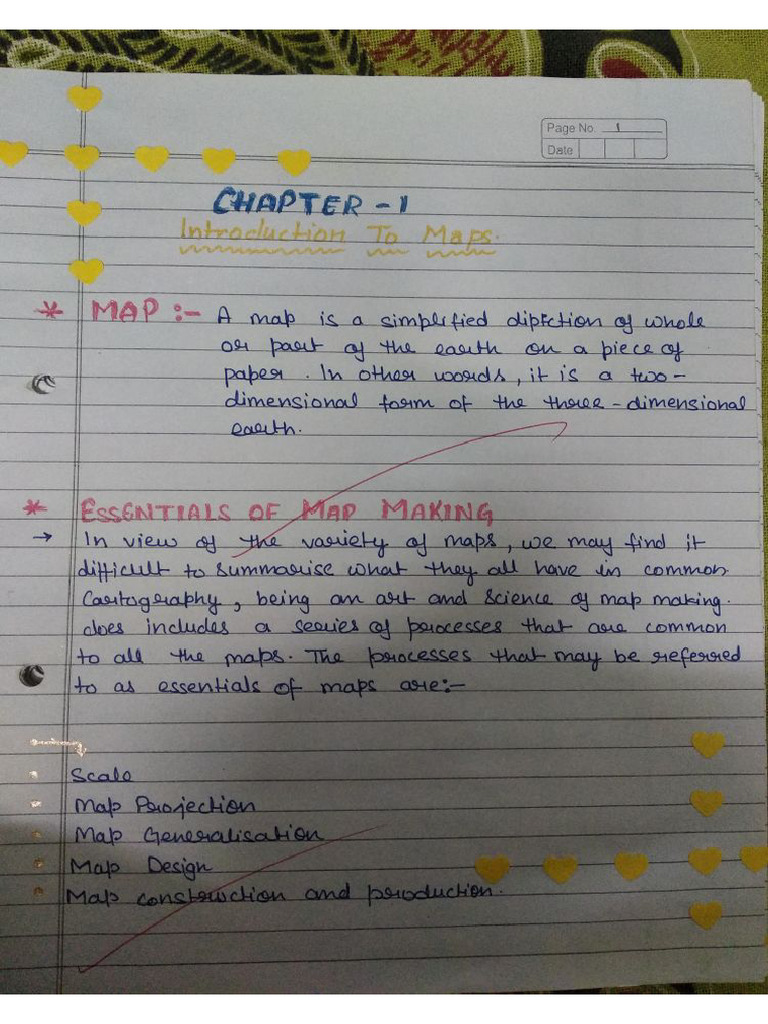 Page No. 1
Date
CHAPTER - 1
Introduction To Maps.
* MAP :- A map is a simplified dipiction of whole
or part of the earth on a piece of
paper. In other words, it is a two-
dimensional form of the three-dimensional
earth.
* ESSENTIALS OF MAP MAKING
→ In view of the variety of maps, we may find it
difficult to summarise what they all have in common.
Cartography, being an art and science of map making.
does includes a series of processes that are common
to all the maps. The processes that may be referred
to as essentials of maps are:-
Scale
Map Projection
Map Generalisation
Map Design
Map construction and production.